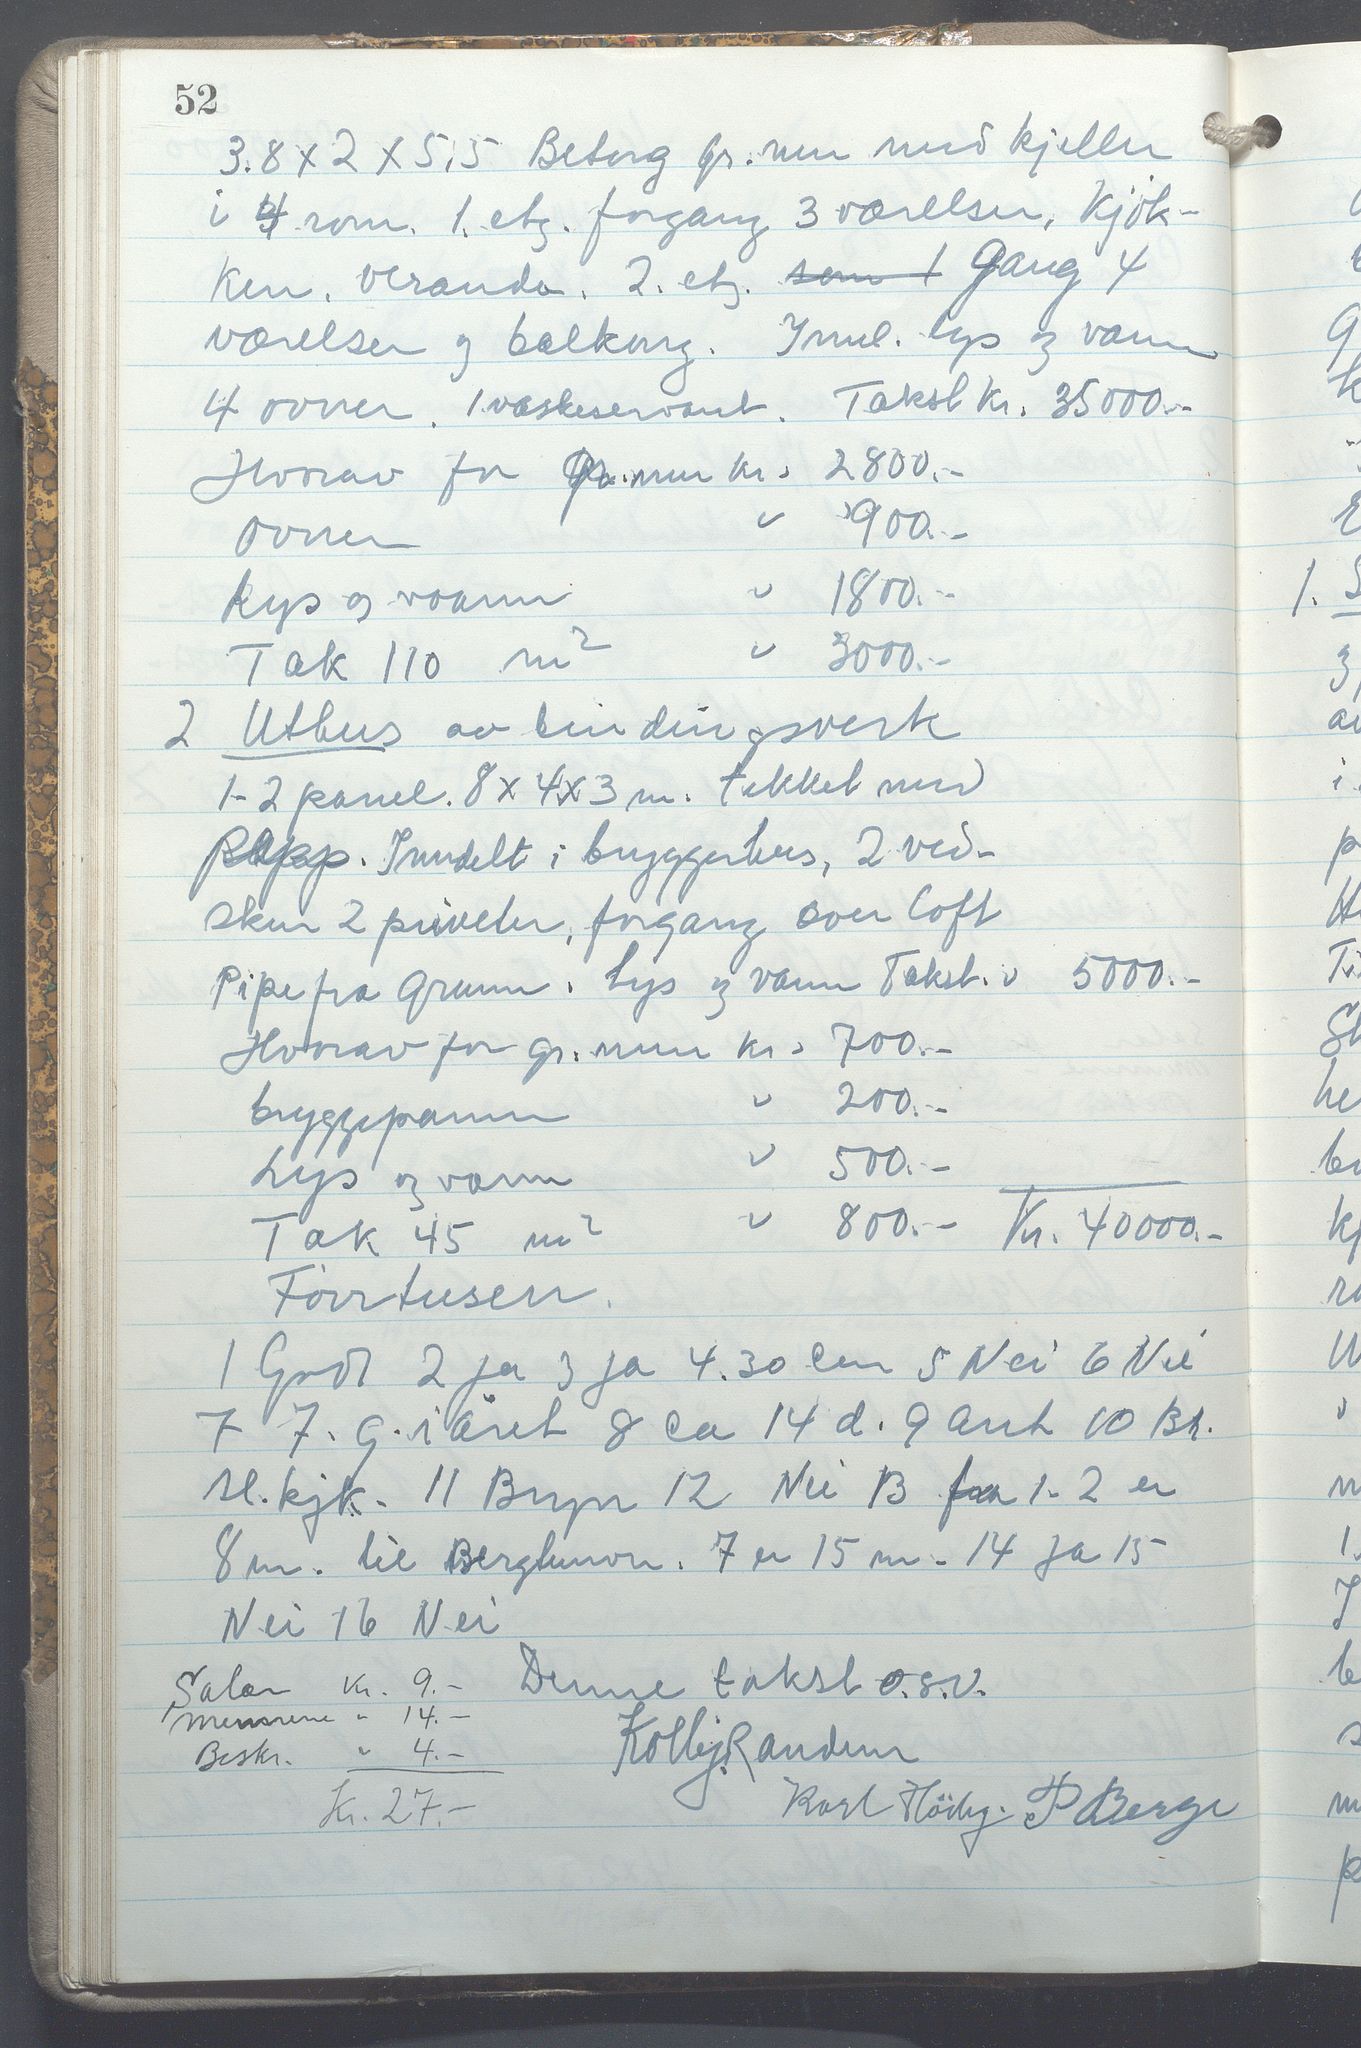 52
3.8 x 2 x 5,5 Betong gr. mur med kjeller
i 4 rom. 1. etg. forgang 3 værelser, kjøk-
ken, veranda. 2. etg. som 1 Gang 4
værelser og balkong. Innl. lys og vann
4 ovner, 1 vaskeservant. Takst kr. 35000.-
Hvorav for Gr. mur kr. 2800.-
ovner " 900.-
Lys og vann " 1800.-
Tak 110 m² " 3000.-
2 Uthus av bindingsverk
1-2 panel. 8 x 4 x 3 m. tekket med
papp. Inndelt i bryggerhus, 2 ved-
skur 2 priveter, forgang over loft
Pipe fra Grunn. Lys og vann Takst. " 5000.-
Hvorav for gr. mur kr. 700.-
bryggepanne " 200.-
Lys og vann " 500.-
Tak 45 m² " 800.- Kr. 40000.-
Førrtusen.
1 Godt 2 ja 3 ja 4. 30 cm 5 Nei 6 Nei
7 7. g. i året 8 Ca 14 d. 9 Ant 10 Br.
sl. kjk. 11 Bryn 12 Nei 13 fra 1-2 er
8 m. til Berghmon. 7 er 15 m. 14 Ja 15
Nei 16 Nei
Salær Kr. 9.- Denne takst o.s.v.
Mennene " 14.-
Beskr. " 4.- Kolbj. Randem
Kr. 27.- Karl Höiby. P Berge